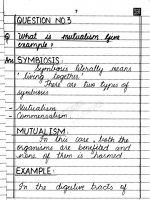 7
QUESTION NO.3
Q What is mutualism give
example?
Ans SYMBIOSIS:
Symbiosis literally means
'living together'
There are two types of
symbiosis
- Mutualism
- Commensalism.
MUTUALISM
In this case, both the
organisms are benefited and
none of them is harmed
EXAMPLE:
In the digestive tracts of